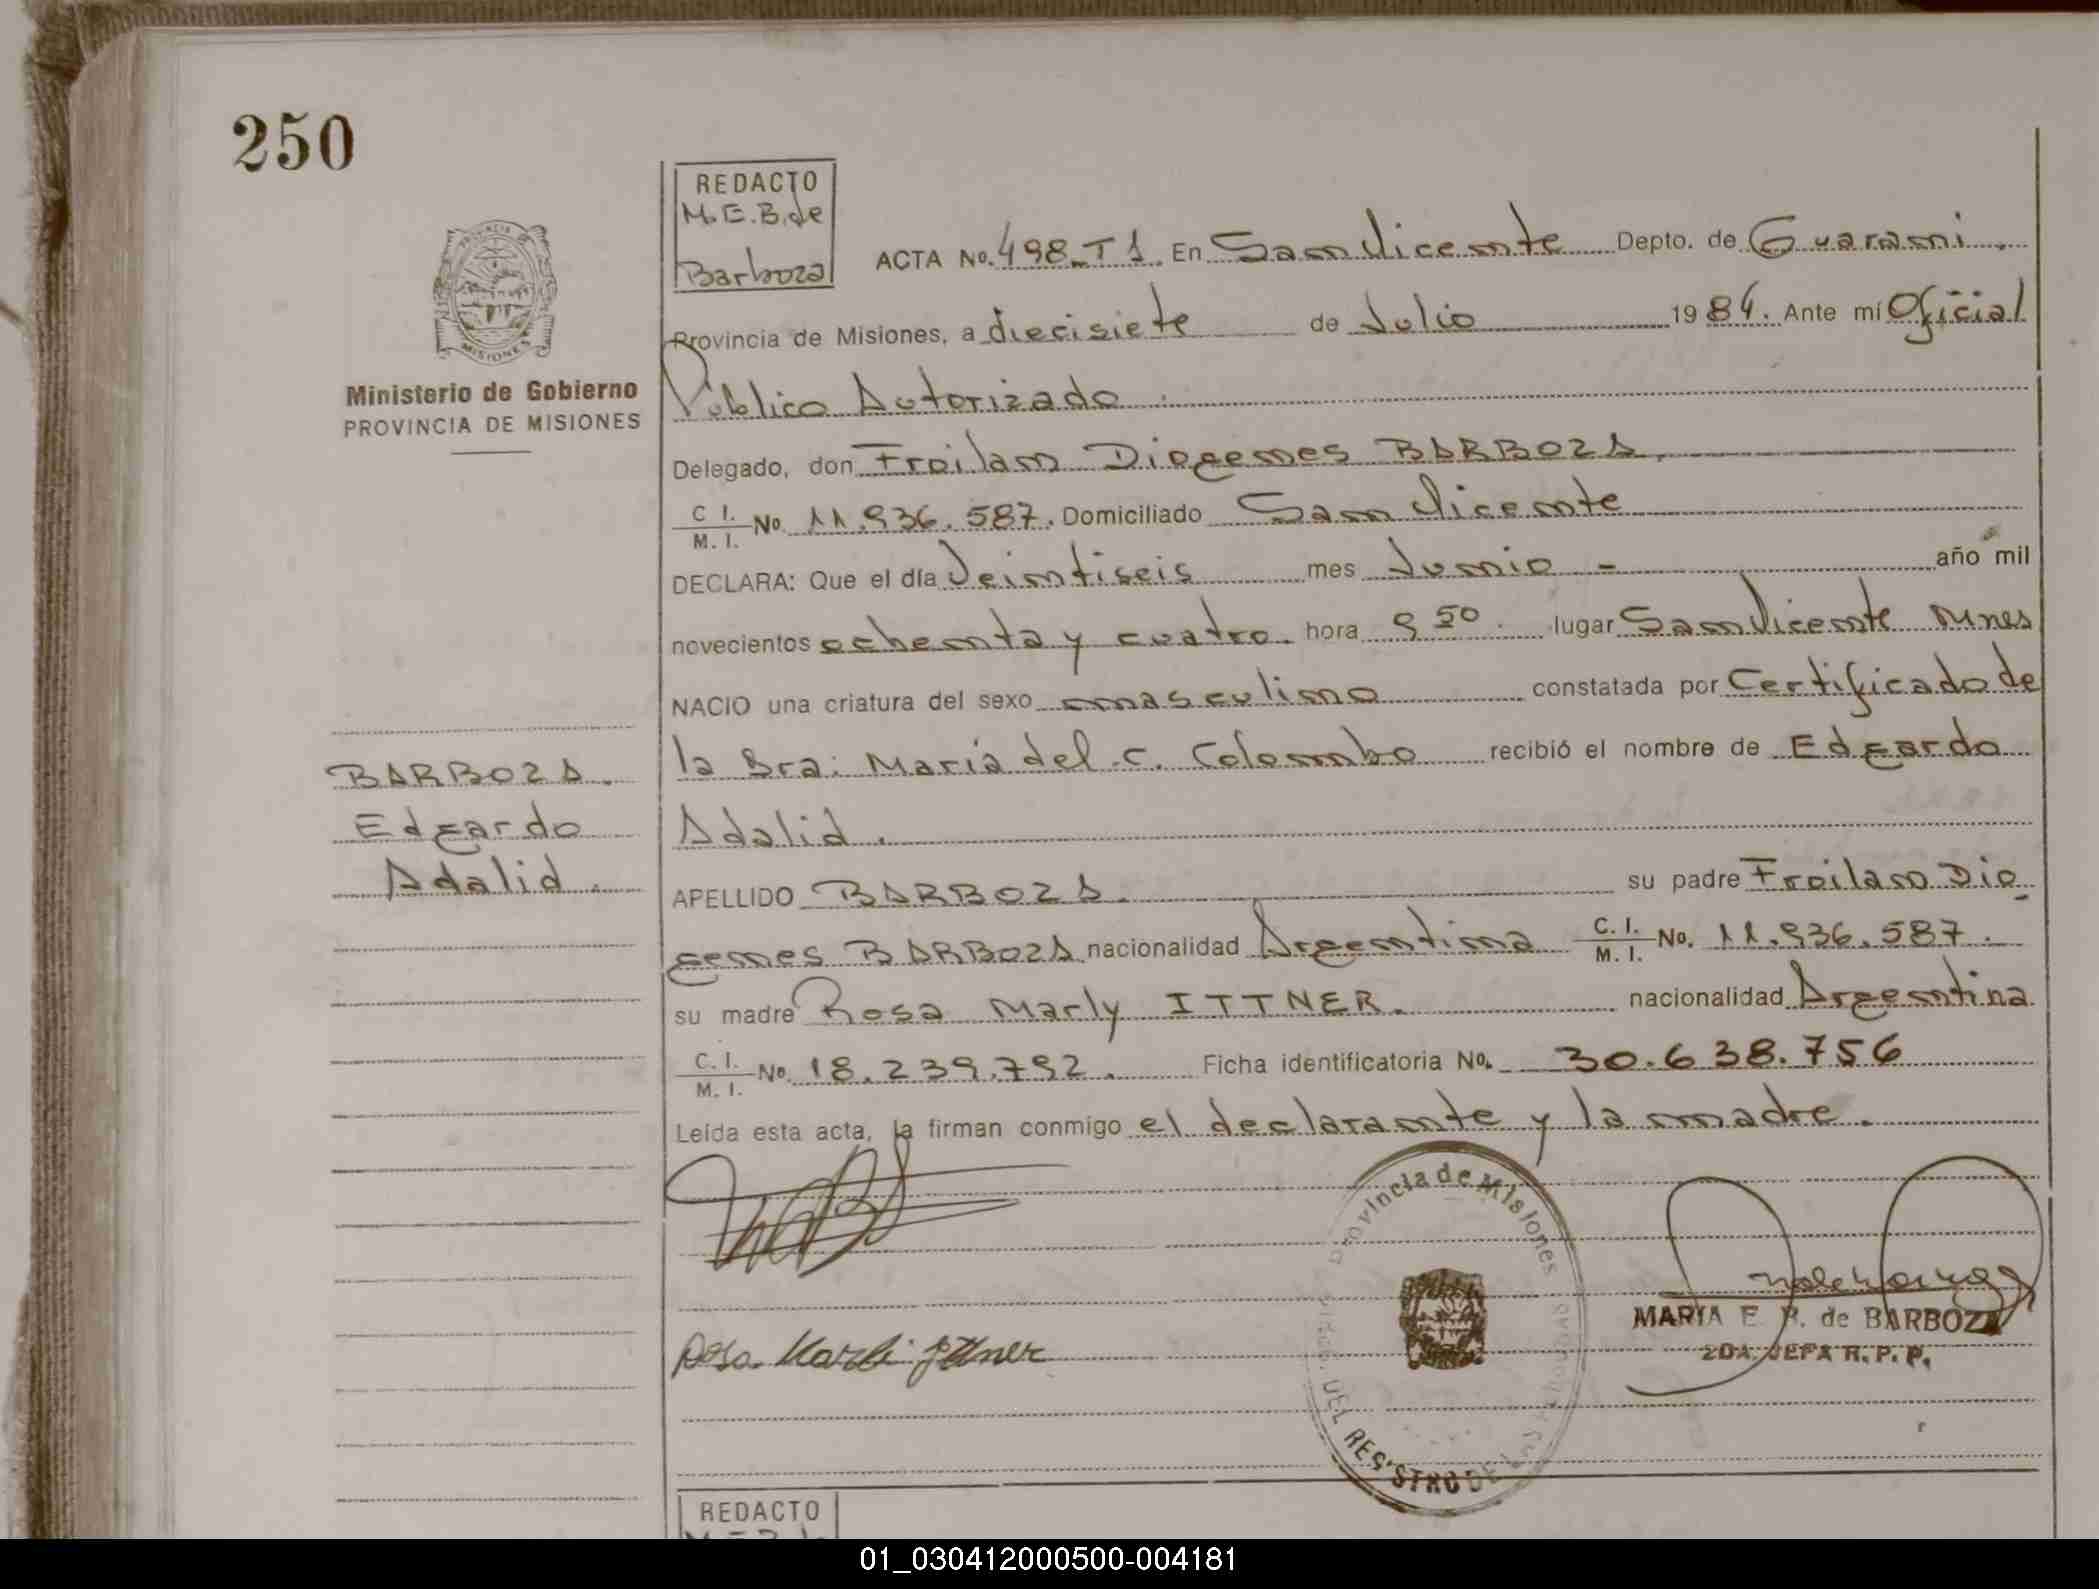 250
REDACTO
M.E.B. de
Barboza
ACTA No. 498-T1. En San Vicente Depto. de Guarani.
Provincia de Misiones, a diecisiete de Julio 1984. Ante mí Oficial
Público Autorizado.
Delegado, don Froilan Diogenes BARBOZA.
C I. / M. I. No. 11.936.587. Domiciliado San Vicente
DECLARA: Que el día Veintiseis mes Junio - año mil
novecientos ochenta y cuatro. hora 9 50. lugar San Vicente Mnes
NACIO una criatura del sexo masculino constatada por Certificado de
la Sra: María del C. Colombo recibió el nombre de Edgardo
Adalid.
APELLIDO BARBOZA. su padre Froilan Dio
genes BARBOZA nacionalidad Argentina C. I. / M. I. No. 11.936.587.
su madre Rosa Marly ITTNER. nacionalidad Argentina
C. I. / M. I. No. 18.239.792. Ficha identificatoria No. 30.638.756
Leída esta acta, la firman conmigo el declarante y la madre.
Ministerio de Gobierno
PROVINCIA DE MISIONES
MISIONES
BARBOZA.
Edgardo
Adalid.
Provincia de Misiones
DEL REGISTRO DE LAS
Rosa Marli Ittner
MARIA E. B. de BARBOZA
2DA. JEFA R. P. P.
REDACTO
M.E.B. de
01_030412000500-004181